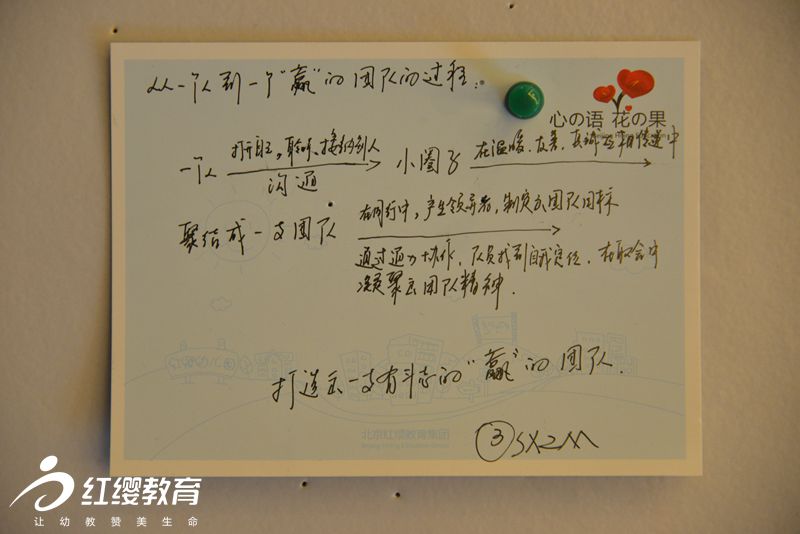 从一个人到一个"赢"的团队的过程。
心の语 花の果
打开自己，聆听、接纳别人
一个人
小圈子
沟通
在温暖、友善、真诚互相传递中
聚结成一支团队
在同行中，产生领导者，制定出团队目标
通过通力协作，队员找到自我定位，在取舍中
凝聚出团队精神．
打造出一支有斗志的"赢"的团队．
北京红缨教育集团
③
红缨教育
让幼教赞美生命